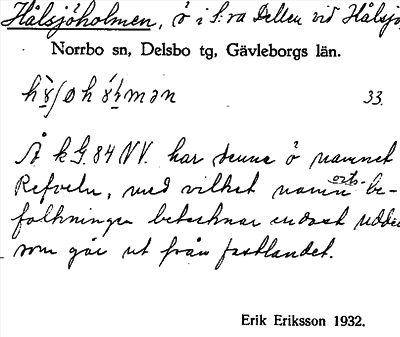 Hålsjöholmen, ö i S:ra Dellen vid Hålsjö
Norrbo sn, Delsbo tg, Gävleborgs län.
33.
På k G. 84 NV. har denna ö namnet
Refveln, med vilket namn orts- be-
folkningen betecknar endast udden
som går ut från fastlandet.
Erik Eriksson 1932.